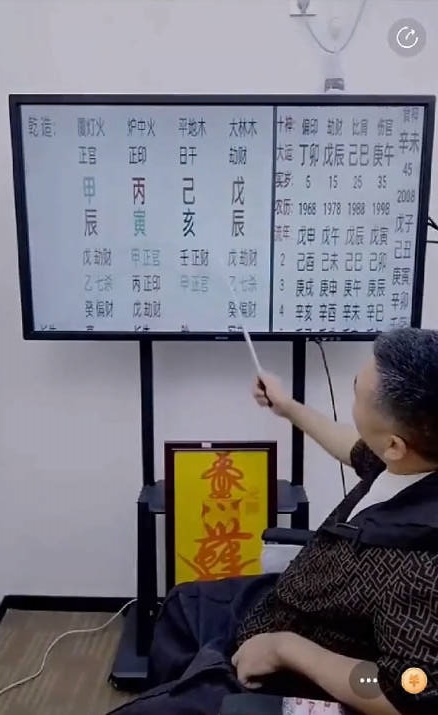 乾造： 覆灯火 炉中火 平地木 大林木
正官 正印 日干 劫财
甲 丙 己 戊
辰 寅 亥 辰
戊劫财 甲正官 壬正财 戊劫财
乙七杀 丙正印 甲正官 乙七杀
癸偏财 戊劫财 癸偏财
十神： 偏印 劫财 比肩 伤官
大运 丁卯 戊辰 己巳 庚午 辛未
实岁： 5 15 25 35 45
农历： 1968 1978 1988 1998 2008
流年 戊申 戊午 戊辰 戊寅 戊子
2 己酉 己未 己巳 己卯 己丑
3 庚戌 庚申 庚午 庚辰 庚寅
4 辛亥 辛酉 辛未 辛巳 辛卯